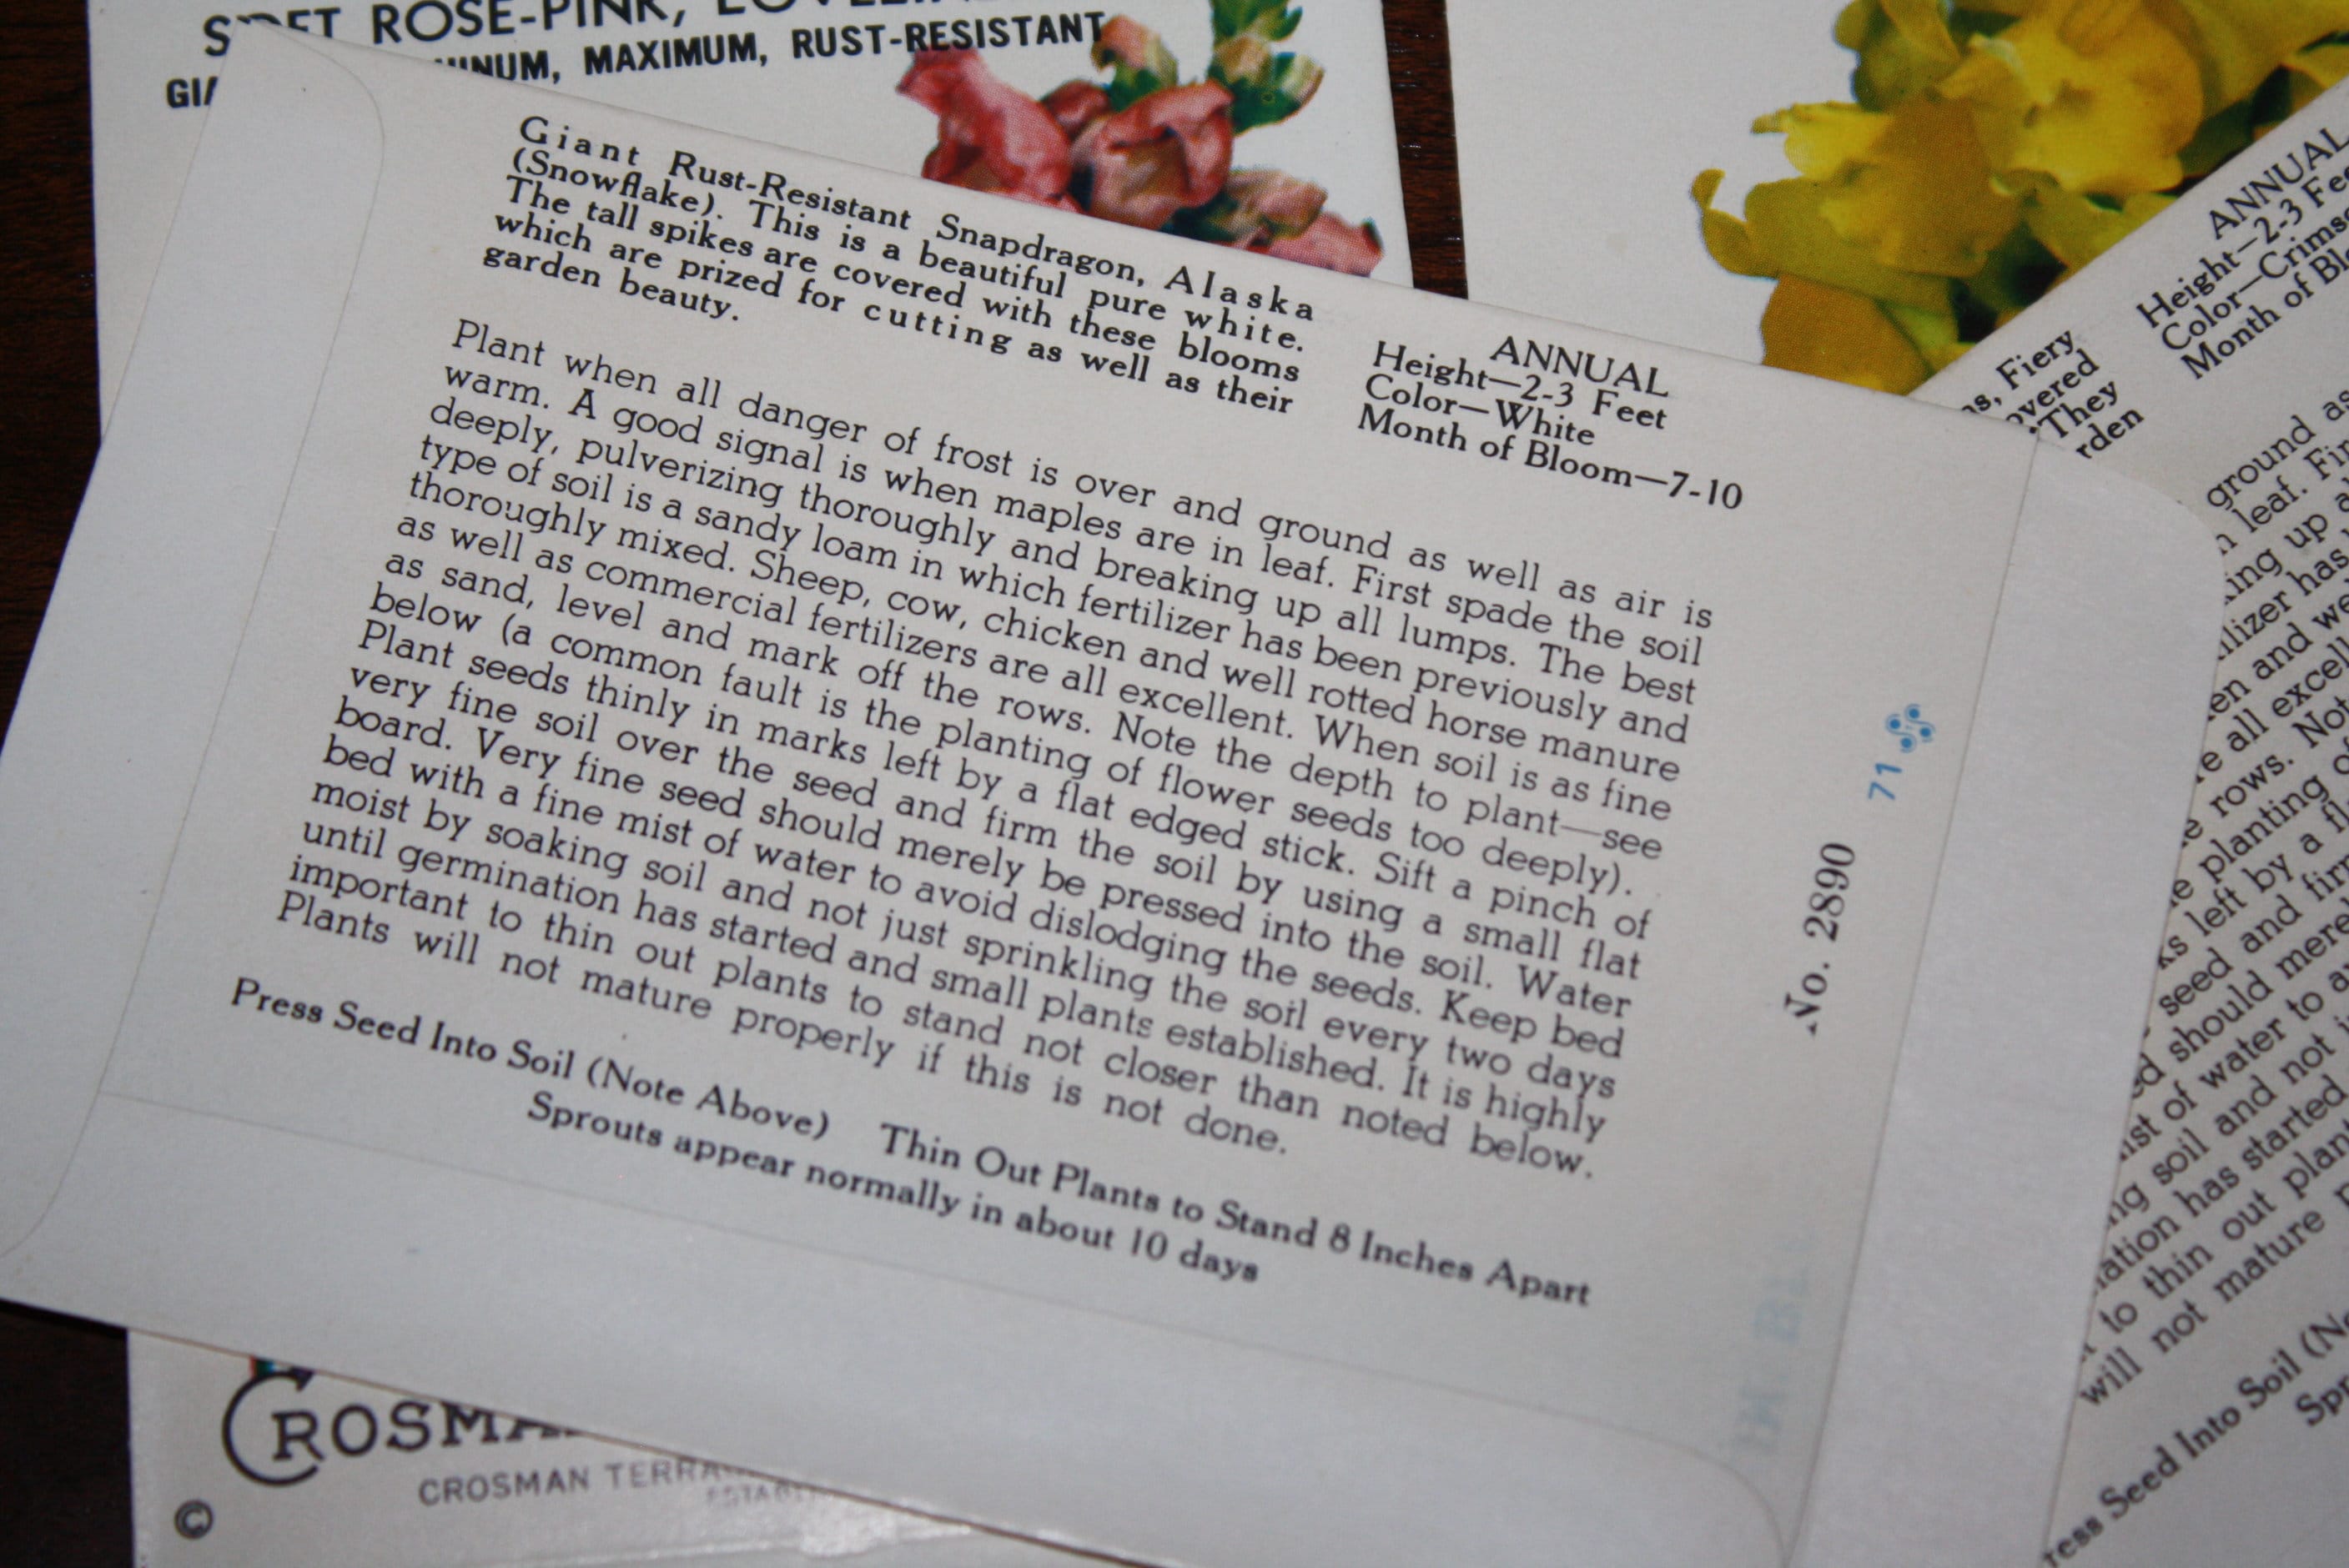 ROSE-PINK,
MAXIMUM, RUST-RESISTANT
Giant Rust-Resistant Snapdragon, Alaska
(Snowflake). This is a beautiful pure white.
The tall spikes are covered with these blooms
which are prized for cutting as well as their
garden beauty.
ANNUAL
Height—2-3 Feet
Color—White
Month of Bloom—7-10
Plant when all danger of frost is over and ground as well as air is
warm. A good signal is when maples are in leaf. First spade the soil
deeply, pulverizing thoroughly and breaking up all lumps. The best
type of soil is a sandy loam in which fertilizer has been previously and
thoroughly mixed. Sheep, cow, chicken and well rotted horse manure
as well as commercial fertilizers are all excellent. When soil is as fine
as sand, level and mark off the rows. Note the depth to plant—see
below (a common fault is the planting of flower seeds too deeply).
Plant seeds thinly in marks left by a flat edged stick. Sift a pinch of
very fine soil over the seed and firm the soil by using a small flat
board. Very fine seed should merely be pressed into the soil. Water
bed with a fine mist of water to avoid dislodging the seeds. Keep bed
moist by soaking soil and not just sprinkling the soil every two days
until germination has started and small plants established. It is highly
important to thin out plants to stand not closer than noted below.
Plants will not mature properly if this is not done.
Press Seed Into Soil (Note Above) Thin Out Plants to Stand 8 Inches Apart
Sprouts appear normally in about 10 days
No. 2890
71
CROSMAN
©
ANNUAL
Height—2-3 Fee
Color—Crims
Month of Bl
Fiery
overed
They
rden
ground as
leaf. Fir
king up a
ilizer has
en and we
e all excell
rows. Not
planting o
ks left by a fl
seed and firm
should mere
ist of water to a
ng soil and not
ation has started
to thin out plant
will not mature
ress Seed Into Soil (No
Spr